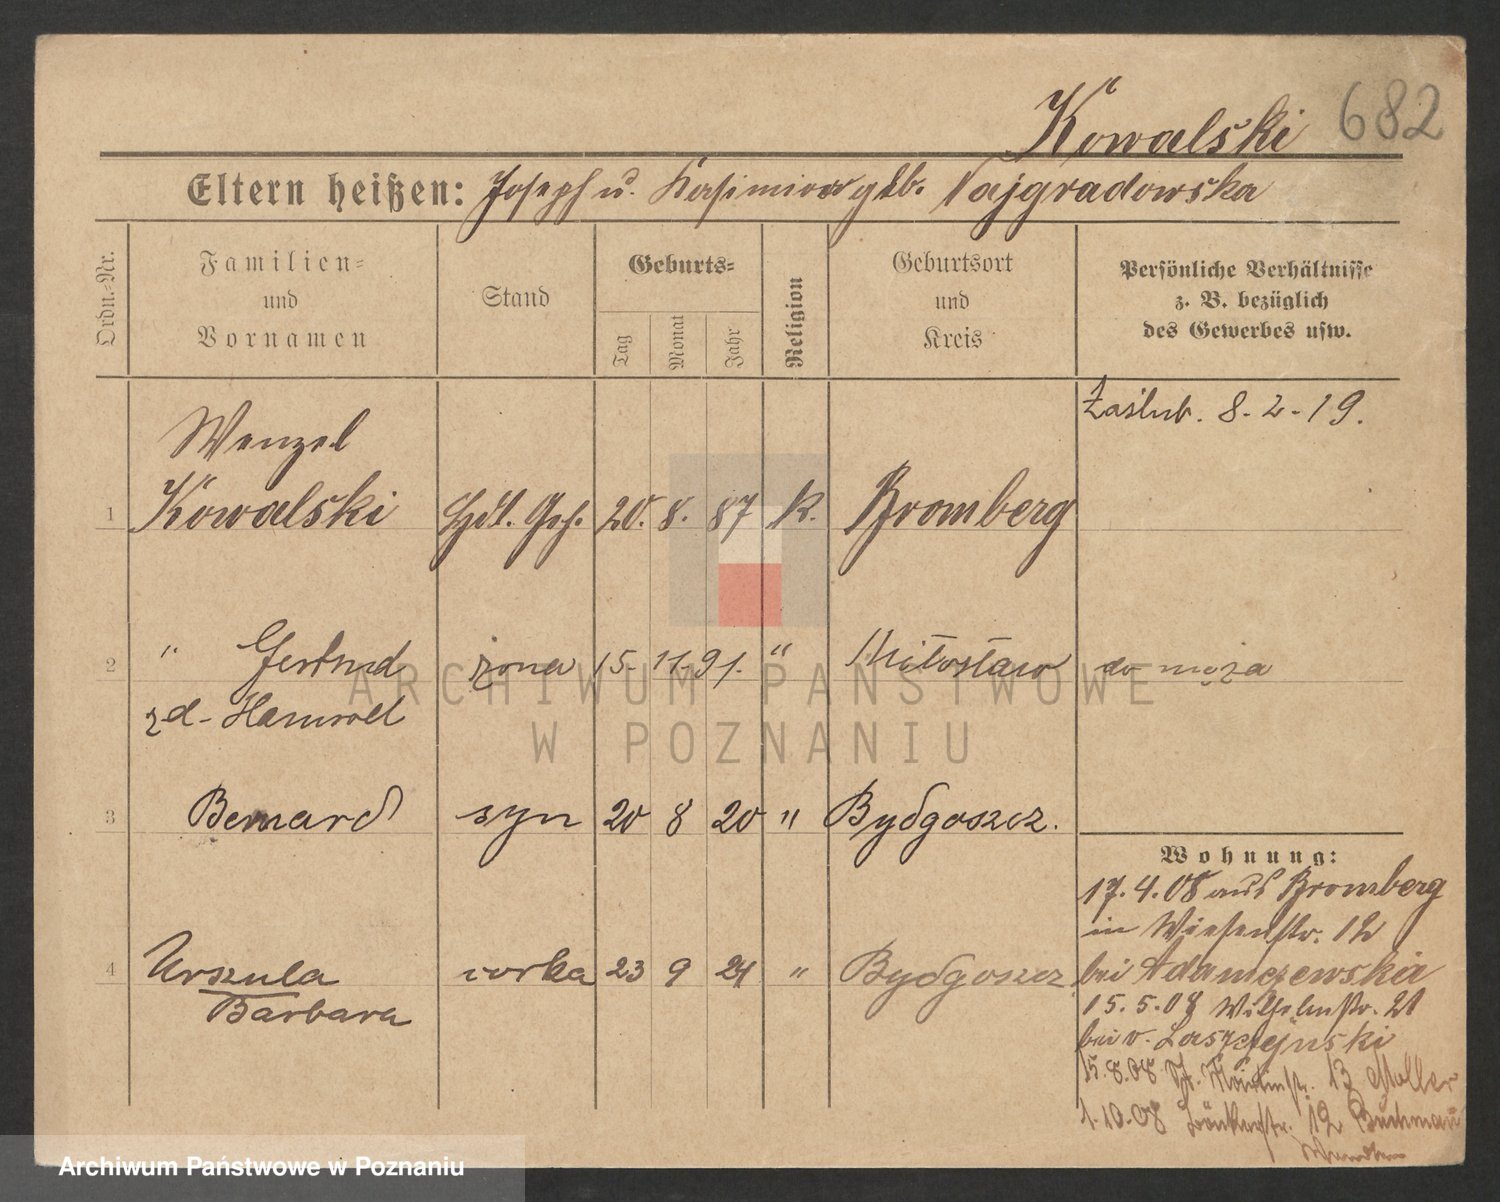 Kowalski 682
Eltern heißen: Joseph u. Kasimira geb. Najgradowska
Ordn.-Nr.
Familien-
und
Vornamen
Stand
Geburts-
Tag
Monat
Jahr
Religion
Geburtsort
und
Kreis
Persönliche Verhältnisse
z. B. bezüglich
des Gewerbes usw.
Zaślub. 8-2-19.
Wenzel
1 Kowalski Hdl. Geh. 20. 8. 87 K. Bromberg
2 " Gertrud żona 15-11-91. " Miłosław do męża
zd-
3 Bernard syn 20 8 20 " Bydgoszcz.
4 Urszula corka 23 9 21 " Bydgoszcz
Barbara
Wohnung:
17.4.08 aus Bromberg
in Wiesenstr. 12
bei Adamczewska
15.5.08 Wilhelmstr. 21
bei v.
15.8.08 St. Martinstr. 13
1.10.08 12
ARCHIWUM PAŃSTWOWE
W POZNANIU
Archiwum Państwowe w Poznaniu